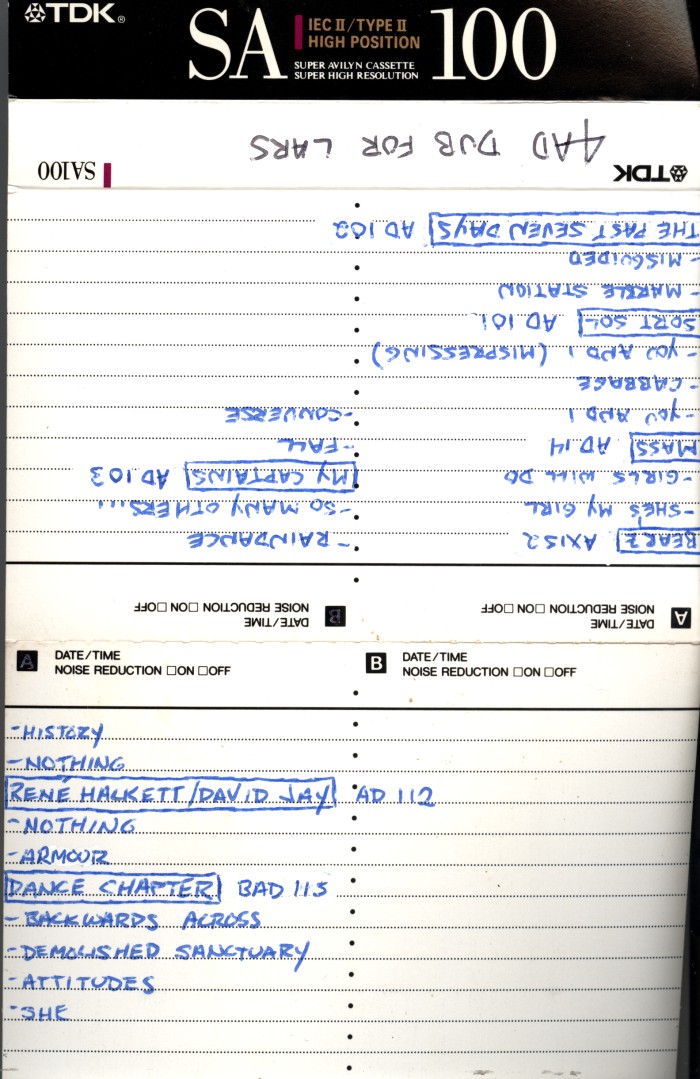 TDK®
SA 100
IEC II/TYPE II
HIGH POSITION
SUPER AVILYN CASSETTE
SUPER HIGH RESOLUTION
TDK
4AD DUB FOR LARS
SA100
A DATE/TIME
NOISE REDUCTION □ON □OFF
BEARZ AXIS2
- SHE'S MY GIRL
- GIRLS WILL DO
MASS AD 14
- YOU AND I
- CABBAGE
- YOU AND I (MISPRESSING)
SORT SOL AD 101
- MARBLE STATION
- MISGUIDED
THE PAST SEVEN DAYS AD 102
B DATE/TIME
NOISE REDUCTION □ON □OFF
- RAINDANCE
- SO MANY OTHERS!!!
MY CAPTAINS AD 103
- FALL
- CONVERSE
A DATE/TIME
NOISE REDUCTION □ON □OFF
B DATE/TIME
NOISE REDUCTION □ON □OFF
- HISTORY
- NOTHING
RENÉ HALKETT/DAVID JAY AD 112
- NOTHING
- ARMOUR
DANCE CHAPTER BAD 115
- BACKWARDS ACROSS
- DEMOLISHED SANCTUARY
- ATTITUDES
- SHE